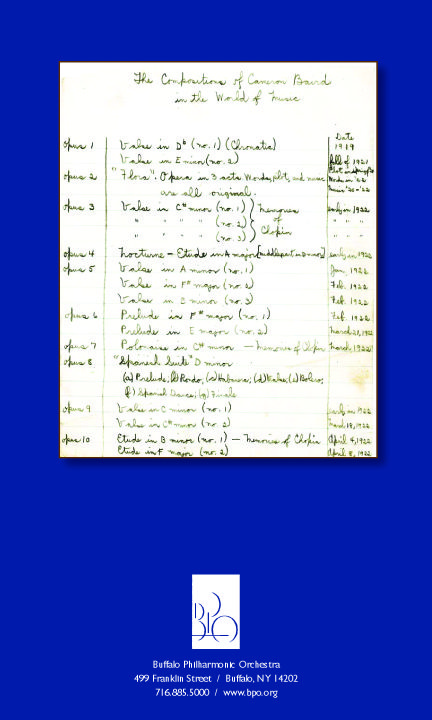 The Compositions of Cameron Baird
in the World of Music
Date
opus 1 Valse in D♭ (no. 1) (Chromatic) 1919
Valse in E minor (no. 2) fall of 1921
opus 2 "Flora". Opera in 3 acts Words, plot, and music
are all original.
opus 3 Valse in C# minor (no. 1) } Memories early in 1922
" " " " (no. 2) } of " " "
" " " " (no. 3) } Chopin " " "
opus 4 Nocturne – Etude in A major [middle part in D minor] early in 1922
opus 5 Valse in A minor (no. 1) Jan, 1922
Valse in F# major (no. 2) Feb. 1922
Valse in E minor (no. 3) Feb. 1922
opus 6 Prelude in F# major (no. 1) Feb. 1922
Prelude in E major (no. 2) March 21, 1922
opus 7 Polonaise in C# minor – Memories of Chopin March, 1922
opus 8 "Spanish Suite" D minor
(a) Prelude, (b) Rondo, (c) Habanera, (d) Valse, (e) Bolero,
(f) Spanish Dance, (g) Finale
opus 9 Valse in C minor (no. 1) early in 1922
Valse in C# minor (no. 2) March 18, 1922
opus 10 Etude in B minor (no. 1) – Memories of Chopin April 4, 1922
Etude in F major (no. 2) April 8, 1922
BPO
Buffalo Philharmonic Orchestra
499 Franklin Street / Buffalo, NY 14202
716.885.5000 / www.bpo.org